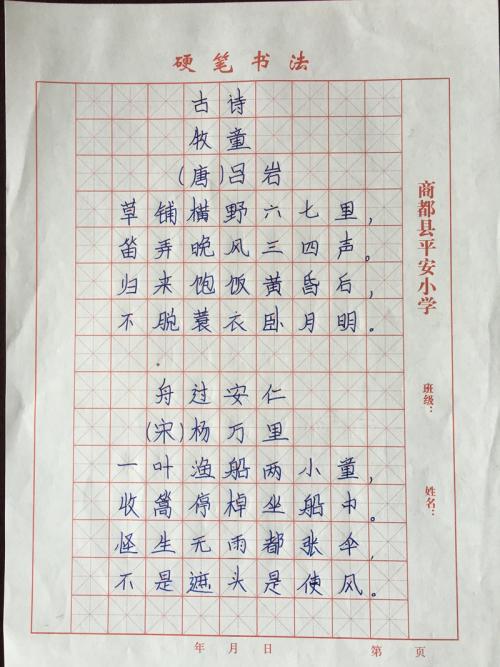 硬笔书法
古诗
牧童
(唐)吕岩
草铺横野六七里,
笛弄晚风三四声。
归来饱饭黄昏后,
不脱蓑衣卧月明。
舟过安仁
(宋)杨万里
一叶渔船两小童,
收篙停棹坐船中。
怪生无雨都张伞,
不是遮头是使风。
商都县平安小学
班级:
姓名:
年 月 日
第 页